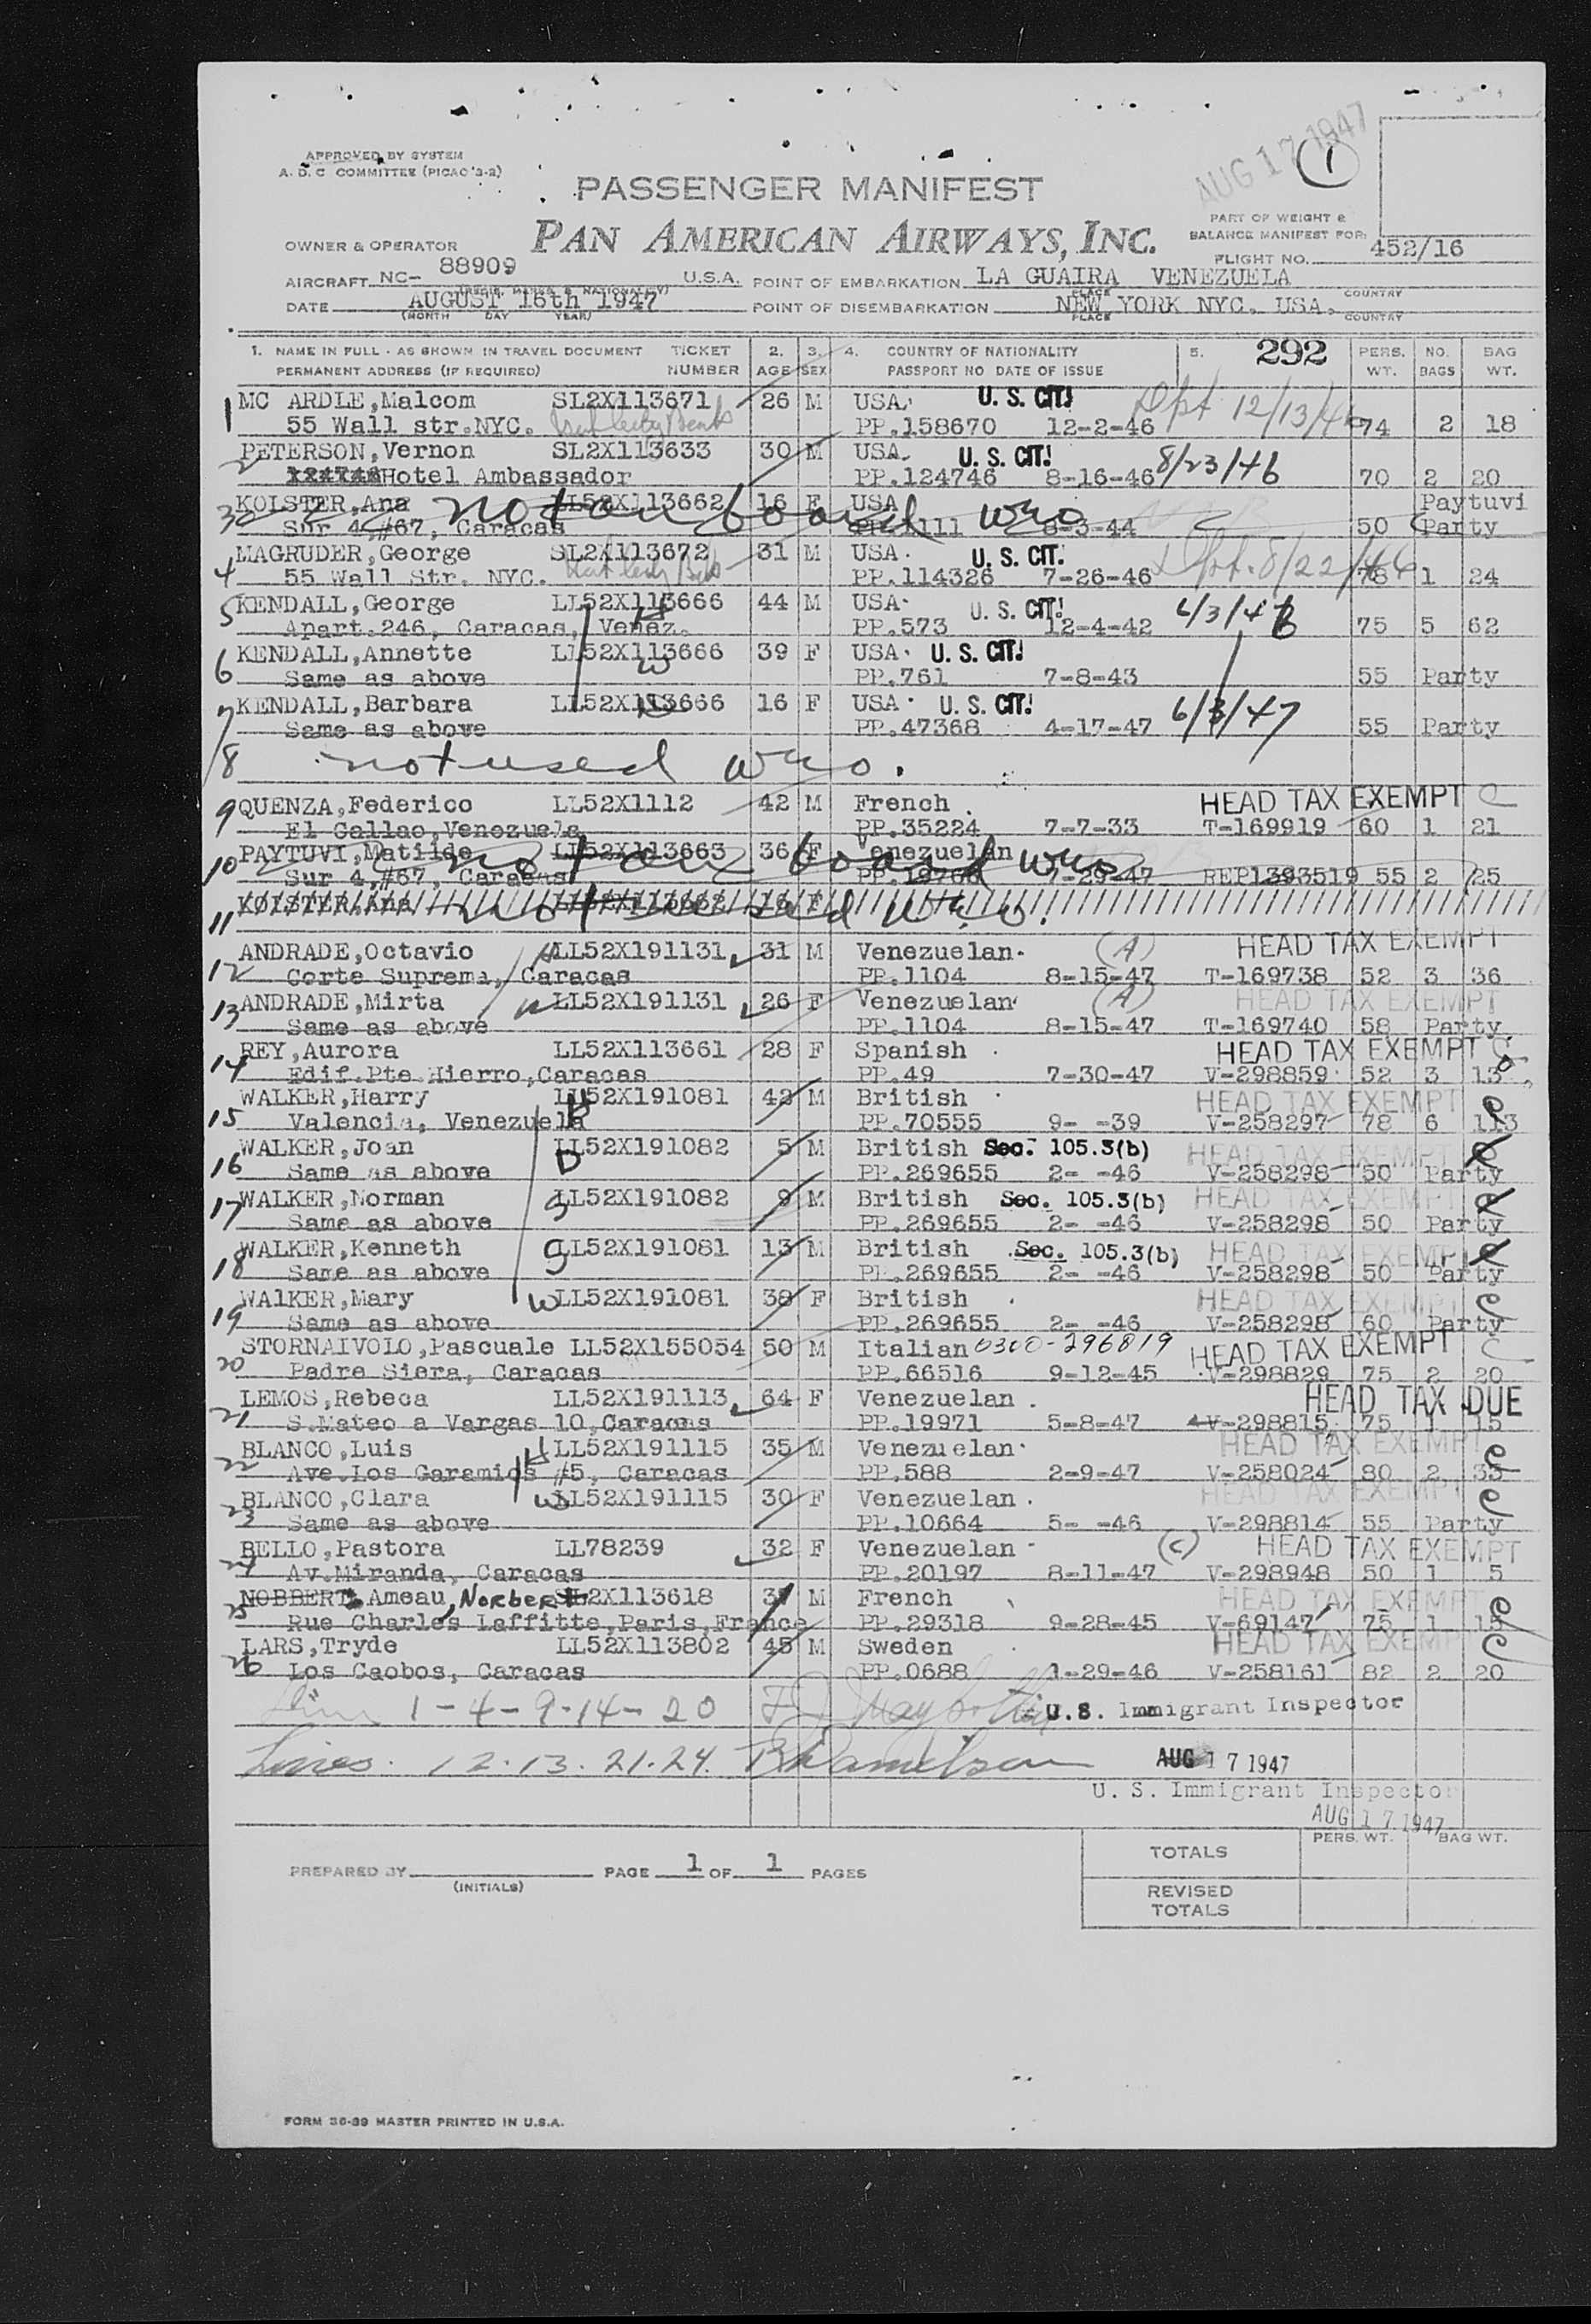 AUG 17 1947
1
APPROVED BY SYSTEM
A. D. C COMMITTEE (PICAO '3-2)
PASSENGER MANIFEST
PAN AMERICAN AIRWAYS, INC.
PART OF WEIGHT &
BALANCE MANIFEST FOR:
FLIGHT NO. 452/16
OWNER & OPERATOR
AIRCRAFT NC- 88909 U.S.A. POINT OF EMBARKATION LA GUAIRA VENEZUELA
(REGIS. MARKS & NATIONALITY) PLACE COUNTRY
DATE AUGUST 16th 1947 POINT OF DISEMBARKATION NEW YORK NYC. USA.
(MONTH DAY YEAR) PLACE COUNTRY
1. NAME IN FULL - AS SHOWN IN TRAVEL DOCUMENT TICKET 2. 3. 4. COUNTRY OF NATIONALITY 5. 292 PERS. NO. BAG
PERMANENT ADDRESS (IF REQUIRED) NUMBER AGE SEX PASSPORT NO DATE OF ISSUE WT. BAGS WT.
1 MC ARDLE,Malcom SL2X113671 26 M USA. U. S. CIT! 12/13/46
55 Wall str.NYC. PP.158670 12-2-46 74 2 18
2 PETERSON,Vernon SL2X113633 30 M USA. U. S. CIT! 8/23/46
Hotel Ambassador PP.124746 8-16-46 70 2 20
3 KOLSTER,Ana LL52X113662 16 F USA Paytuvi
not on board who
Sur 4,#67, Caracas 8-3-44 50 Party
4 MAGRUDER,George SL2X113672 31 M USA. U. S. CIT! 8/22/46
55 Wall Str. NYC. PP.114326 7-26-46 78 1 24
5 KENDALL,George LL52X113666 44 M USA. U. S. CIT! 6/3/47
Apart.246, Caracas, Venez. H PP.573 12-4-42 75 5 62
6 KENDALL,Annette LL52X113666 39 F USA. U. S. CIT!
Same as above W PP.761 7-8-43 55 Party
7 KENDALL,Barbara LL52X113666 16 F USA. U. S. CIT! 6/3/47
Same as above PP.47368 4-17-47 55 Party
8 not used who.
9 QUENZA,Federico LL52X1112 42 M French HEAD TAX EXEMPT C
El Callao,Venezuela PP.35224 7-7-33 T-169919 60 1 21
10 PAYTUVI,Matilde LL52X113663 36 F Venezuelan
not on board who
Sur 4,#67, Caracas PP.19766 7-29-47 REP1393519 55 2 25
11 KOLSTER,Ana LL52X113662 16 F
not used who.
12 ANDRADE,Octavio H LL52X191131 31 M Venezuelan. (A) HEAD TAX EXEMPT
Corte Suprema, Caracas PP.1104 8-15-47 T-169738 52 3 36
13 ANDRADE,Mirta W LL52X191131 26 F Venezuelan (A) HEAD TAX EXEMPT
Same as above PP.1104 8-15-47 T-169740 58 Party
14 REY,Aurora LL52X113661 28 F Spanish HEAD TAX EXEMPT C
Edif.Pte.Hierro,Caracas PP.49 7-30-47 V-298859 52 3 13
15 WALKER,Harry LL52X191081 42 M British HEAD TAX EXEMPT C
Valencia, Venezuela H PP.70555 9- -39 V-258297 78 6 113
16 WALKER,Joan D LL52X191082 5 M British Sec. 105.3(b) HEAD TAX EXEMPT
Same as above PP.269655 2- -46 V-258298 50 Party
17 WALKER,Norman S LL52X191082 9 M British Sec. 105.3(b) HEAD TAX EXEMPT
Same as above PP.269655 2- -46 V-258298 50 Party
18 WALKER,Kenneth S LL52X191081 13 M British Sec. 105.3(b) HEAD TAX EXEMPT
Same as above PP.269655 2- -46 V-258298 50 Party
19 WAlKER,Mary W LL52X191081 38 F British HEAD TAX EXEMPT C
Same as above PP.269655 2- -46 V-258298 60 Party
20 STORNAIVOLO,Pascuale LL52X155054 50 M Italian 0300-296819 HEAD TAX EXEMPT C
Padre Siera, Caracas PP.66516 9-12-45 V-298829 75 2 20
21 LEMOS,Rebeca LL52X191113 64 F Venezuelan. HEAD TAX DUE
S.Mateo a Vargas 10,Caracas PP.19971 5-8-47 V-298815 75 1 15
22 BLANCO,Luis H LL52X191115 35 M Venezuelan. HEAD TAX EXEMPT C
Ave.Los Garamios #5, Caracas PP.588 2-9-47 V-258024 80 2 35
23 BLANCO,Clara W LL52X191115 30 F Venezuelan. HEAD TAX EXEMPT C
Same as above PP.10664 5- -46 V-298814 55 Party
24 BELLO,Pastora LL78239 32 F Venezuelan (C) HEAD TAX EXEMPT
Av.Miranda, Caracas PP.20197 8-11-47 V-298948 50 1 5
25 NOBBERT, Ameau, Norbert SL2X113618 M French HEAD TAX EXEMPT C
Rue Charles Laffitte,Paris,France PP.29318 9-28-45 V-69147 75 1 15
26 LARS,Tryde LL52X113802 45 M Sweden HEAD TAX EXEMPT C
Los Caobos, Caracas PP.0688 1-29-46 V-258161 82 2 20
1-4-9-14-20 U.S. Immigrant Inspector
Lines. 12.13.21.24. AUG 17 1947
U. S. Immigrant Inspector
AUG 17 1947
PERS. WT. BAG WT.
TOTALS
PREPARED BY PAGE 1 OF 1 PAGES
(INITIALS)
REVISED
TOTALS
FORM 36-39 MASTER PRINTED IN U.S.A.